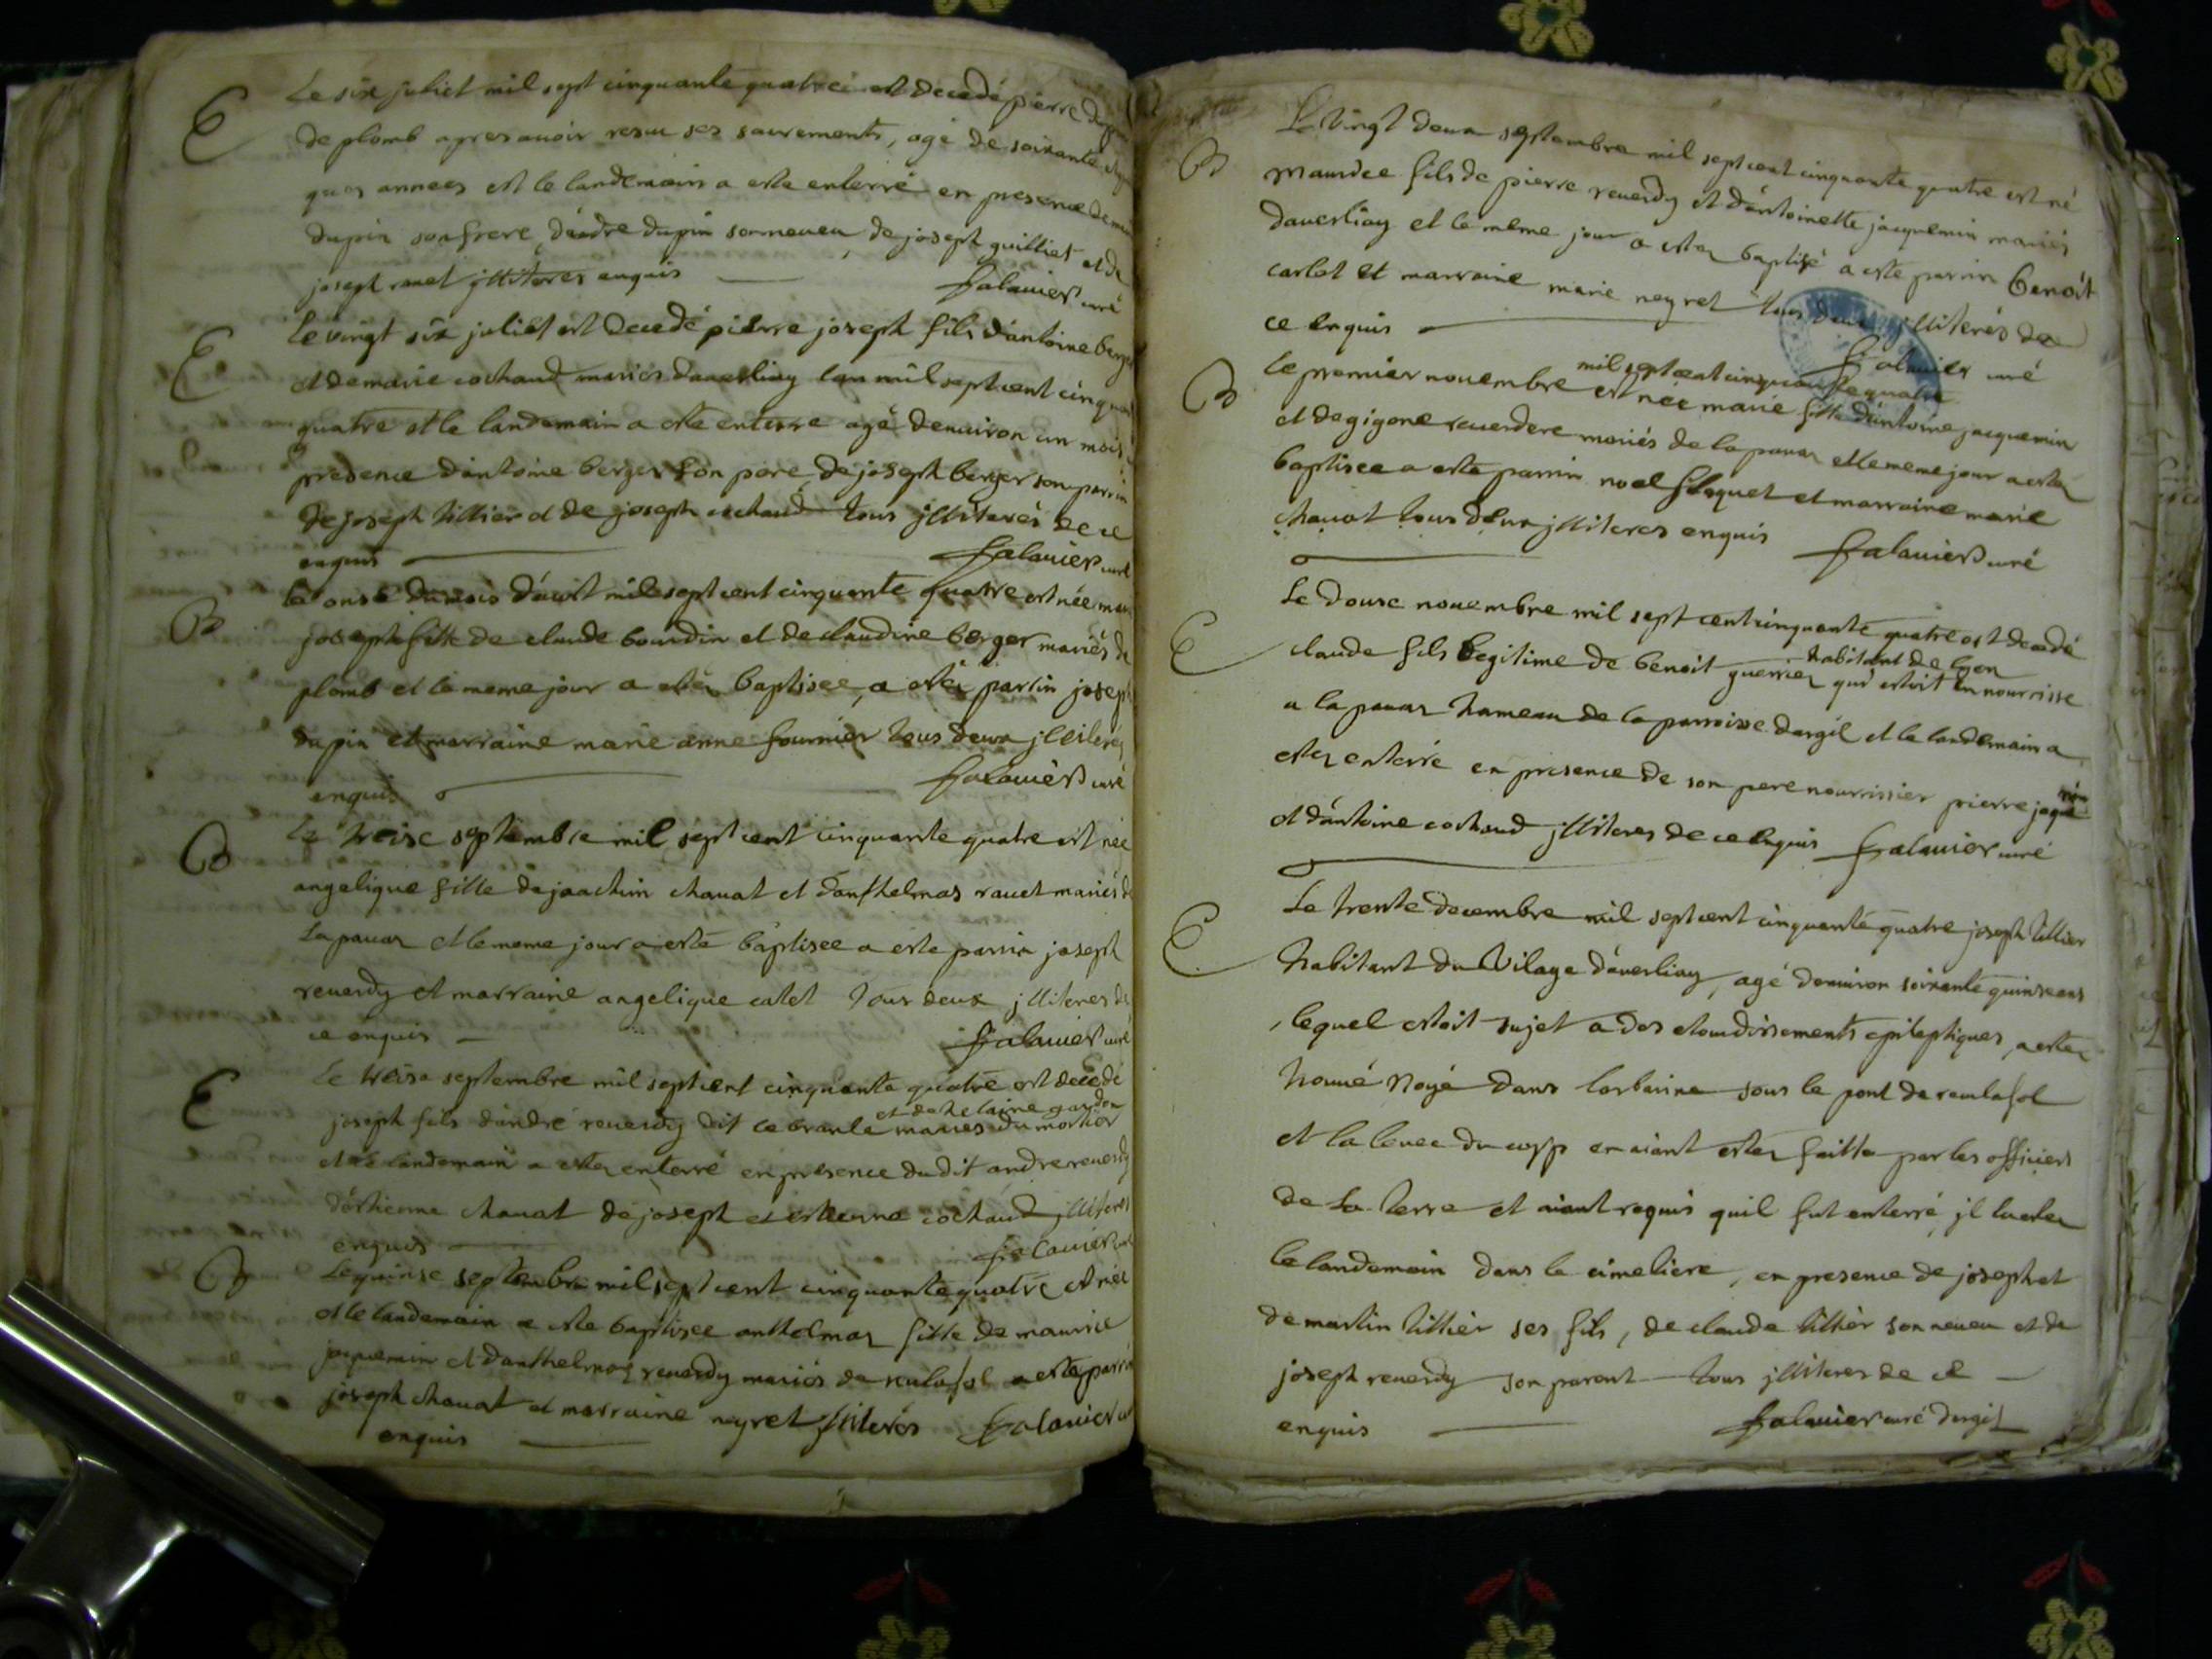 E
Le six juliet mil sept cinquante quatre est decedé pierre
de plomb apres avoir resu ses sacrements, agé de soixante
ques annees et le landemain a este enterré en presence de
dupin son frere, dandre dupin son neveu, de joseph guilliet et de
joseph ravet jlliteres enquis falavier curé
E
Le vingt six juliet est decedé pierre joseph fils d'antoine berger
et de marie cochaud mariés daverliay lan mil sept cent cinquante
quatre et le landemain a este enterré agé denviron un mois
presence dantoine berger son pere, de joseph berger son parrin
de joseph tillier et de joseph cochaud tous jlliterés de ce
enquis falavier curé
B
le onse du mois d'aout mil sept cent cinquante quatre est née
joseph fille de claude bourdin et de claudine berger mariés de
plomb et le meme jour a estez baptisee, a estez parrin joseph
dupin et marraine marie anne fournier tous deux jlliterés
enquis falavier curé
B
Le treise septembre mil sept cent cinquante quatre est née
angelique fille de joachim chavat et d'anthelmas ravet mariés de
la pavaz et le meme jour a esté baptisee a este parrin joseph
reverdy et marraine angelique catet tous deux jlliteres de
ce enquis falavier curé
E
Le treise septembre mil sept cent cinquante quatre est decedé
joseph fils dandré reverdy dit le branle et de helaine mariés du mortier
et le landemain a estez enterré en presence dudit andre reverdy
d'estienne chavat de joseph et estienne cochaud jlliteres
enquis falavier curé
B
Le quinse septembre mil sept cent cinquante quatre est née
et le landemain a este baptisee anthelmaz fille de maurice
jaquemin et danthelmaz reverdy mariés de rulafol a este parrin
joseph chavat et marraine neyret jlliterés falavier curé
enquis
B
Le vingt deux septembre mil sept cent cinquante quatre est né
maurice fils de pierre reverdy et d'antoinette jacquemin mariés
daverliay et le meme jour a estez baptisé a este parrin benoit
carlet et marraine marie neyret tous deux jlliterés de
ce enquis falavier curé
B
mil sept cent cinquante quatre
Le premier novembre est née marie fille d'antoine jacquemin
et de gigone reverdere mariés de la pavaz et le meme jour a estez
baptisee a este parrin noel floquet et marraine marie
chavat tous deux jlliteres enquis falavier curé
E
Le douse novembre mil sept cent cinquante quatre est decedé
habitant de lyon
claude fils legitime de benoit guerrier qui estoit en nourrisse
a la pavaz hameau de la parroisse dargil et le landemain a
estez enterré en presence de son pere nourrissier pierre jaquemin
et d'antoine cochaud jlliteres de ce enquis falavier curé
E
Le trente decembre mil sept cent cinquante quatre joseph tillier
habitant du vilage d'averliay, agé denviron soixante quinse ans
lequel estoit sujet a des etourdissements epileptiques, a estez
trouvé noyé dans lorbaine sous le pont de reculafol
et la levee du corp en aiant estez faitte par les officiers
de la terre et aiant requis quil fut enterré, jl la estez
le landemain dans le cimetiere, en presence de joseph et
de martin tillier ses fils, de claude tillier son neveu et de
joseph reverdy son parent tous jlliteres de ce
enquis falavier curé dargil